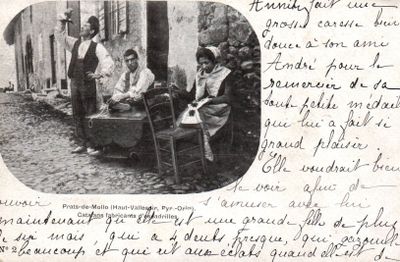 Annie fait une
grosse caresse bien
douce à son ami
André pour le
remercier de sa
tout petite médaille
qui lui a fait si
grand plaisir.
Elle voudrait bien
le voir afin de
pouvoir s'amuser avec lui
maintenant qu'elle est une grande fille de plus
de six mois, qui a 4 dents presque, qui gazouille
beaucoup et qui rit aux éclats quand elle est de
Prats-de-Mollo (Haut-Vallespir, Pyr.-Orles)
Catalans fabricants d'espadrilles
N° 2